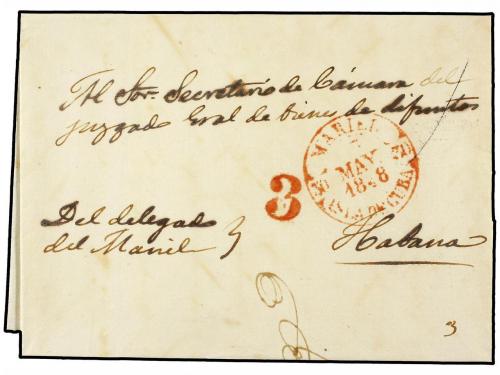 Al Sor. Secretario de Cámara del
juzgado Gral de bienes de difuntos
MARIEL
MAY.
1848
ISLA DE CUBA
3
Del delegado
del Mariel
Habana
3